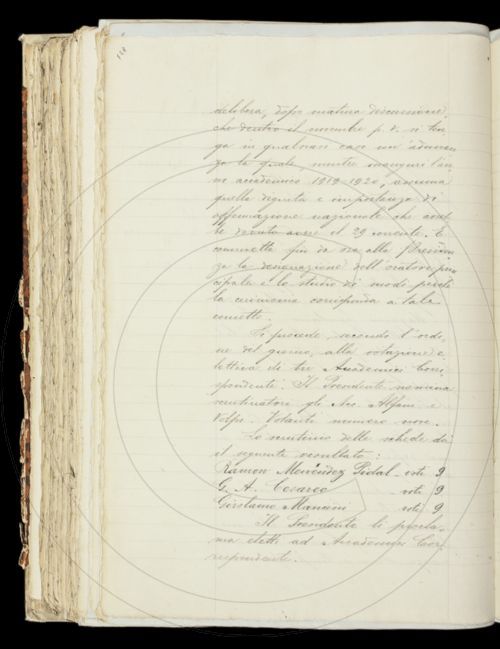 delibera, dopo matura discussione,
che dentro il novembre p. v. si ten-
ga in qualsiasi caso un'adunan-
za la quale, mentre inauguri l'an-
no accademico 1919-1920, assuma
quella dignità e importanza di
affermazione nazionale che avreb-
be dovuto avere il 29 corrente. E
commette fin da ora alla Presiden-
za la designazione dell'oratore prin-
cipale e lo studio dei modi perché
la cerimonia corrisponda a tale
concetto.
Si procede, secondo l'ordi-
ne del giorno, alla votazione e-
lettiva di tre Accademici Corri-
spondenti. Il Presidente nomina
scrutinatori gli Acc. Alfani e
Volpi. Votanti numero nove.
Lo scrutinio delle schede dà
il seguente resultato:
Ramon Menéndez Pidal - voti 9
G. A. Cesareo - voti 9
Girolamo Mancini voti 9
Il Presidente li procla-
ma eletti ad Accademici Cor-
rispondenti.